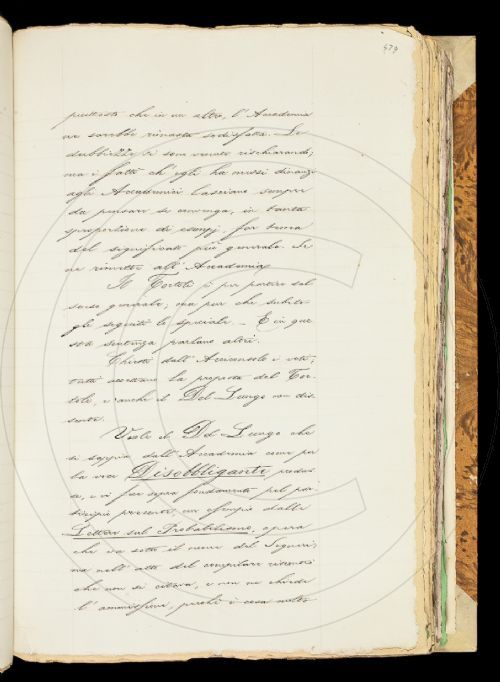 479
piuttosto che in un altro, l'Accademia
ne sarebbe rimasta sodisfatta. Le
dubbiezze si sono venute rischiarando;
ma i fatti ch'egli ha messi dinanzi
agli Accademici lasciano sempre
da pensare se convenga, in tanta
sproporzione di esempj, far tema
del significato più generale. Se
ne rimette all'Accademia
Il Tortoli è per partire dal
senso generale, ma pur che subito
gli seguiti lo speciale. — E in que
sta sentenza parlano altri.
Chiesti dall'Arciconsolo i voti,
tutti accettano la proposta del Tor-
toli, e anche il Del Lungo non dis-
sente.
Vuole il Del Lungo che
si sappia dall'Accademia come per
la voce Disobbligante
e vi fece sopra fondamento pel par-
ticipio presente, un esempio dalle
Lettere sul Probabilismo, opera
che va sotto il nome del Segneri;
ma nell'atto del compilare riscontrò
che non si citava, e non ne chiede
l'ammissione, perchè è cosa molto